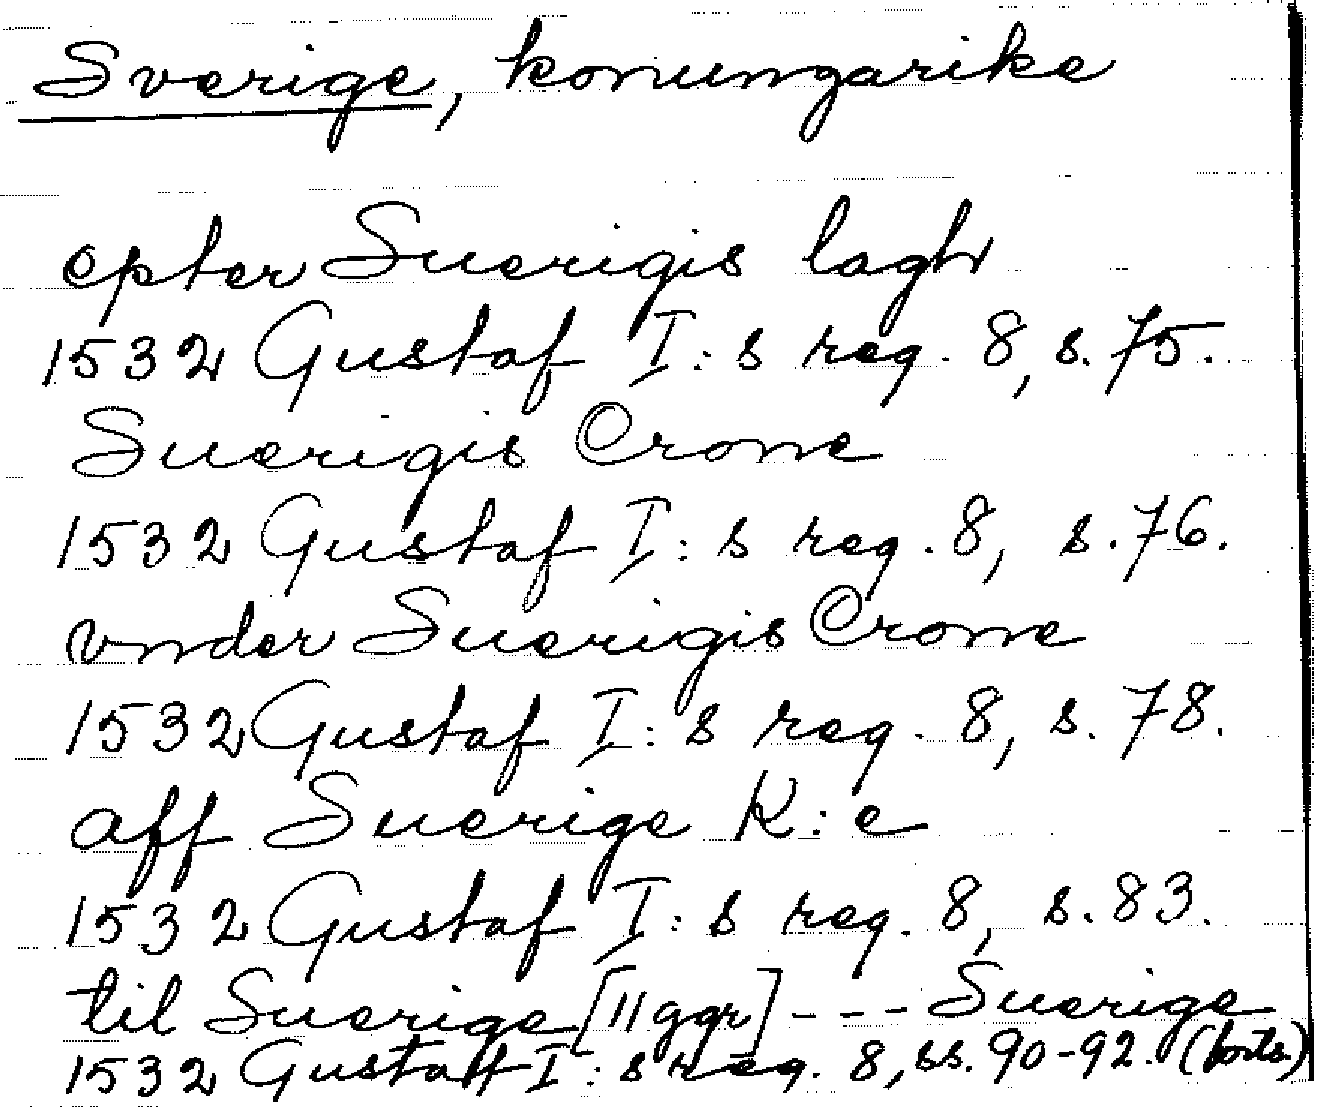 Sverige, konungarike
epter Suerigis lagh
1532 Gustaf I:s reg. 8, s. 75.
Suerigis Crone
1532 Gustaf I:s reg. 8, s. 76.
vnder Suerigis Crone
1532 Gustaf I:s reg. 8, s. 78.
aff Suerige K:e
1532 Gustaf I:s reg. 8, s. 83.
til Suerige [11 ggr] --- Suerige
1532 Gustaff I:s reg. 8, ss. 90-92. (forts.)